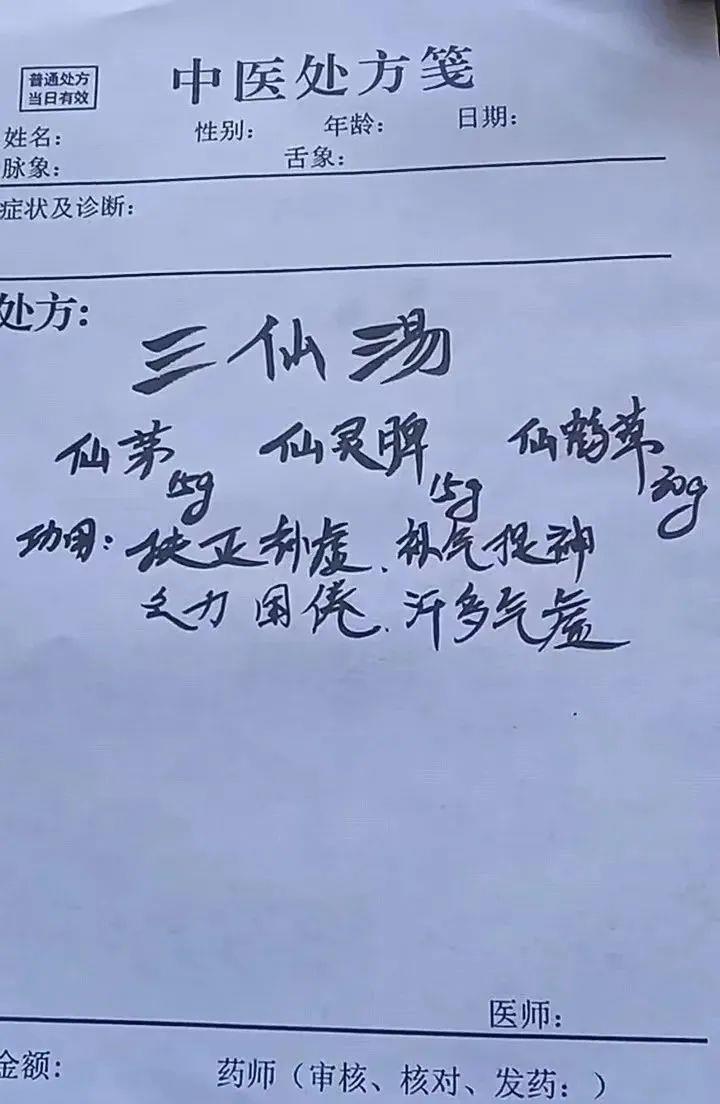 中医处方笺
普通处方
当日有效
姓名: 性别: 年龄: 日期:
脉象: 舌象:
症状及诊断:
处方:
三仙湯
仙茅 15g 仙灵脾 15g 仙鹤草 30g
功用: 扶正补虚、补气提神
乏力困倦、汗多气虚
医师:
金额: 药师（审核、核对、发药: ）